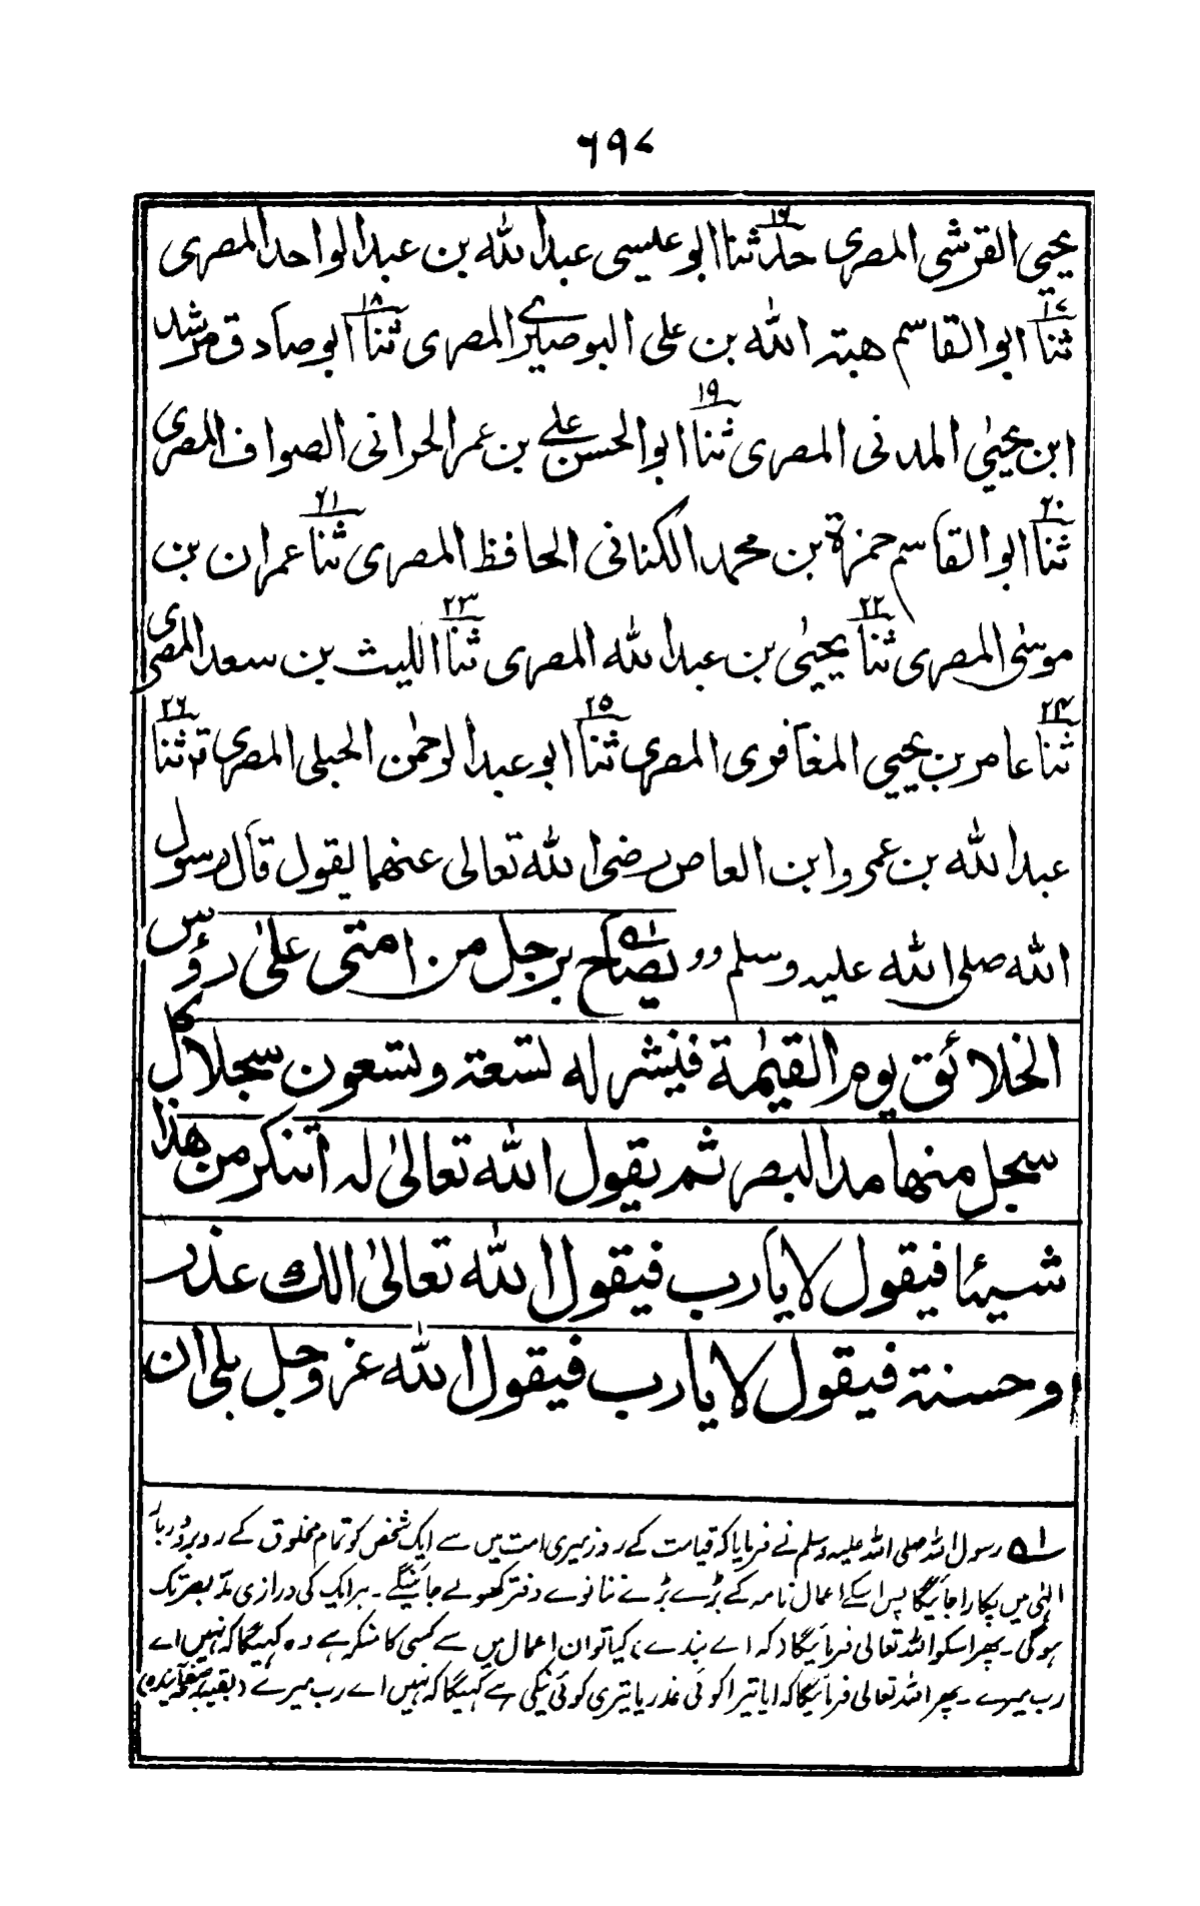 ٦٩٧
يحيي القرشي المصري حدثنا١٦ ابو عيسى عبدالله بن عبدالواحد المصرى
ثنا١٧ ابو القاسم هبته الله بن على البوصيرے المصرى ثنا١٨ ابو صادق مرشد
ابن يحيىٰ المدنى المصرى ثنا١٩ ابوالحسن علے بن عمر الحرانى الصواف المصرى
ثنا٢٠ ابو القاسم حمزة بن محمد الكنانى الحافظ المصرى ثنا٢١ عمران بن
موسىٰ المصرى ثنا٢٢ يحيىٰ بن عبدالله المصرى ثنا٢٣ الليث بن سعد المصرى
ثنا٢٤ عامر بن يحيي المغافرى المصرى ثنا٢٥ ابو عبدالرحمٰن الحبلى المصرى ثنا٢٦
عبدالله بن عمرو ابن العاص رضى الله تعالى عنهما يقول قال رسول
الله صلى الله عليه وسلم وو يصاح١ه برجل من امتى علىٰ رؤس
الخلائق يوم القيٰمة فينشر له تسعة وتسعون سجلا كل
سجل منها مد البصر ثم يقول الله تعالىٰ له اتنكر من هذا
شيئا فيقول لا يارب فيقول الله تعالىٰ الك عذر
وحسنة فيقول لا يارب فيقول الله عز وجل بلى ان
١ه رسول الله صلی الله علیہ وسلم نے فرمایا کہ قیامت کے روز میری امت میں سے ایک شخص کو تمام مخلوق کے روبرو دربار
الٰہی میں پکارا جائیگا پس اسکے اعمال نامہ کے بڑے بڑے ننانوے دفتر کھولے جائینگے ۔ ہر ایک کی درازی مد بصر تک
ہوگی ۔ پھر اسکو الله تعالی فرمائیگا ( کہ اے بندے ) کیا تو ان اعمال میں سے کسی کا منکر ہے وہ کہیگا کہ نہیں اے
رب میرے ۔ پھر الله تعالی فرمائیگا کہ ایا تیرا کوئی عذر یا تیری کوئی نیکی ہے کہیگا کہ نہیں اے رب میرے ( بقیہ صفحہ آیندہ )